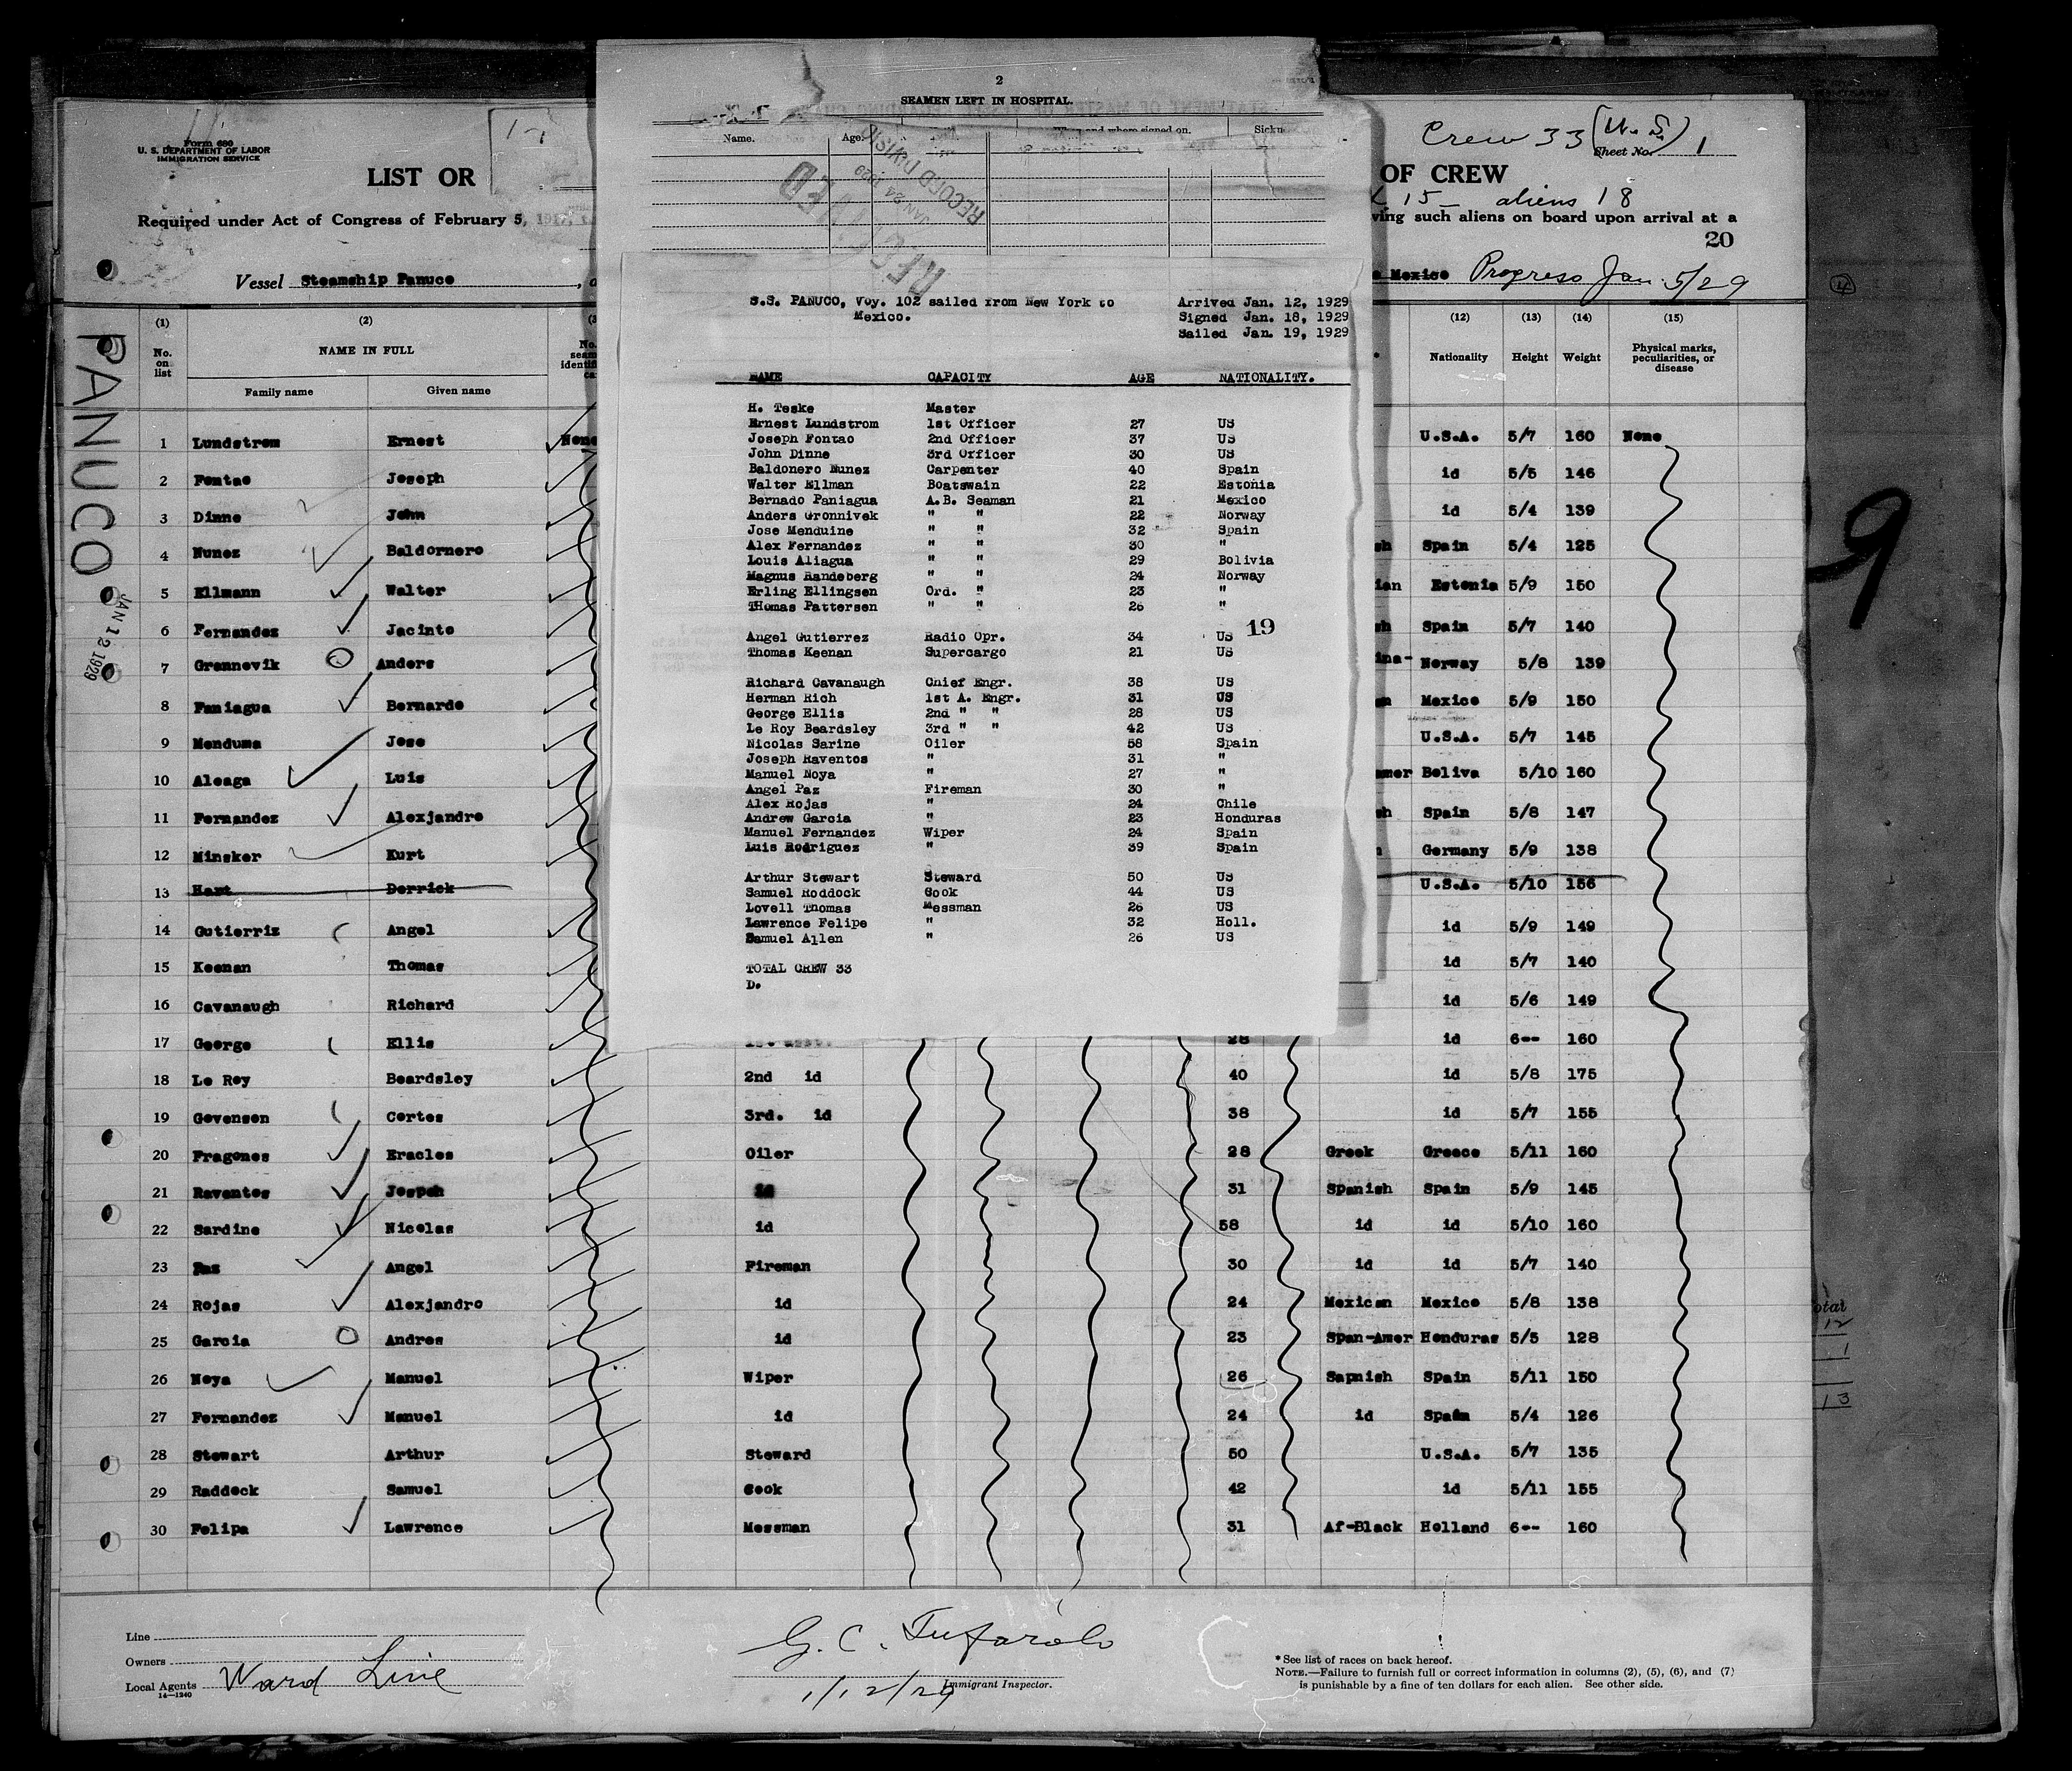 2
SEAMEN LEFT IN HOSPITAL.
Name. Age. When and where signed on.
RECEIVED
JAN 24 1929
RECORD DIVISION
Form 680
U. S. DEPARTMENT OF LABOR
IMMIGRATION SERVICE
Crew 33 (U. S.)
Sheet No. 1
LIST OR
OF CREW
15 – aliens 18
Required under Act of Congress of February 5, 1917,
ving such aliens on board upon arrival at a
20
Vessel Steamship Panuco
Mexico Progreso Jan. 5/29
PANUCO
JAN 12 1929
9
S.S. PANUCO, Voy. 102 sailed from New York to Arrived Jan. 12, 1929
Mexico. Signed Jan. 18, 1929
Sailed Jan. 19, 1929
NAME CAPACITY AGE NATIONALITY.
H. Teske Master
Ernest Lundstrom 1st Officer 27 US
Joseph Fontao 2nd Officer 37 US
John Dinne 3rd Officer 30 US
Baldonero Nunez Carpenter 40 Spain
Walter Ellman Boatswain 22 Estonia
Bernado Paniagua A.B. Seaman 21 Mexico
Anders Gronnivek " " 22 Norway
Jose Menduine " " 32 Spain
Alex Fernandez " " 30 "
Louis Aliagua " " 29 Bolivia
Magnus Randeberg " " 24 Norway
Erling Ellingsen Ord. " 23 "
THomas Pattersen " " 26 "
19
Angel Gutierrez Radio Opr. 34 US
Thomas Keenan Supercargo 21 US
Richard Cavanaugh Chief Engr. 38 US
Herman Rich 1st A. Engr. 31 US
George Ellis 2nd " " 28 US
Le Roy Beardsley 3rd " " 42 US
Nicolas Sarine Oiler 58 Spain
Joseph Raventos " 31 "
Manuel Noya " 27 "
Angel Paz Fireman 30 "
Alex Rojas " 24 Chile
Andrew Garcia " 23 Honduras
Manuel Fernandez Wiper 24 Spain
Luis Rodriguez " 39 Spain
Arthur Stewart Steward 50 US
Samuel Roddock Cook 44 US
Lovell Thomas Messman 26 US
Lawrence Felipe " 32 Holl.
Samuel Allen " 26 US
TOTAL CREW 33
D.
(1) (2) (12) (13) (14) (15)
No. on list NAME IN FULL Nationality Height Weight Physical marks, peculiarities, or disease
Family name Given name
1 Lundstrom Ernest None U.S.A. 5/7 160 None
2 Fontao Joseph id 5/5 146
3 Dinne John id 5/4 139
4 Nunez Baldornero Spain 5/4 125
5 Ellmann Walter Estonia 5/9 150
6 Fernandez Jacinto Spain 5/7 140
7 Grennevik Anders Norway 5/8 139
8 Paniagua Bernardo Mexico 5/9 150
9 Menduma Jose U.S.A. 5/7 145
10 Aleaga Luis Boliva 5/10 160
11 Fernandez Alexjandro Spain 5/8 147
12 Minsker Kurt Germany 5/9 138
13 Hart Derrick U.S.A. 5/10 156
14 Gutierriz Angel id 5/9 149
15 Keenan Thomas id 5/7 140
16 Cavanaugh Richard id 5/6 149
17 George Ellis 1st asst. 28 id 6-- 160
18 Le Roy Beardsley 2nd id 40 id 5/8 175
19 Gevensen Cortes 3rd. id 38 id 5/7 155
20 Fragones Eracles Oiler 28 Greek Greece 5/11 160
21 Raventos Jospeh id 31 Spanish Spain 5/9 145
22 Sardine Nicolas id 58 id id 5/10 160
23 Paz Angel Fireman 30 id id 5/7 140
24 Rojas Alexjandro id 24 Mexican Mexico 5/8 138
25 Garcia Andres id 23 Span-Amer Honduras 5/5 128
26 Noya Manuel Wiper 26 Sapnish Spain 5/11 150
27 Fernandez Manuel id 24 id Spain 5/4 126
28 Stewart Arthur Steward 50 U.S.A. 5/7 135
29 Raddock Samuel Cook 42 id 5/11 155
30 Felipa Lawrence Messman 31 Af-Black Holland 6-- 160
otal
12
1
13
Line
Owners
Local Agents Ward Line
14—1240
G. C. Tufarolo
1/12/29 Immigrant Inspector.
* See list of races on back hereof.
NOTE.—Failure to furnish full or correct information in columns (2), (5), (6), and (7)
is punishable by a fine of ten dollars for each alien. See other side.